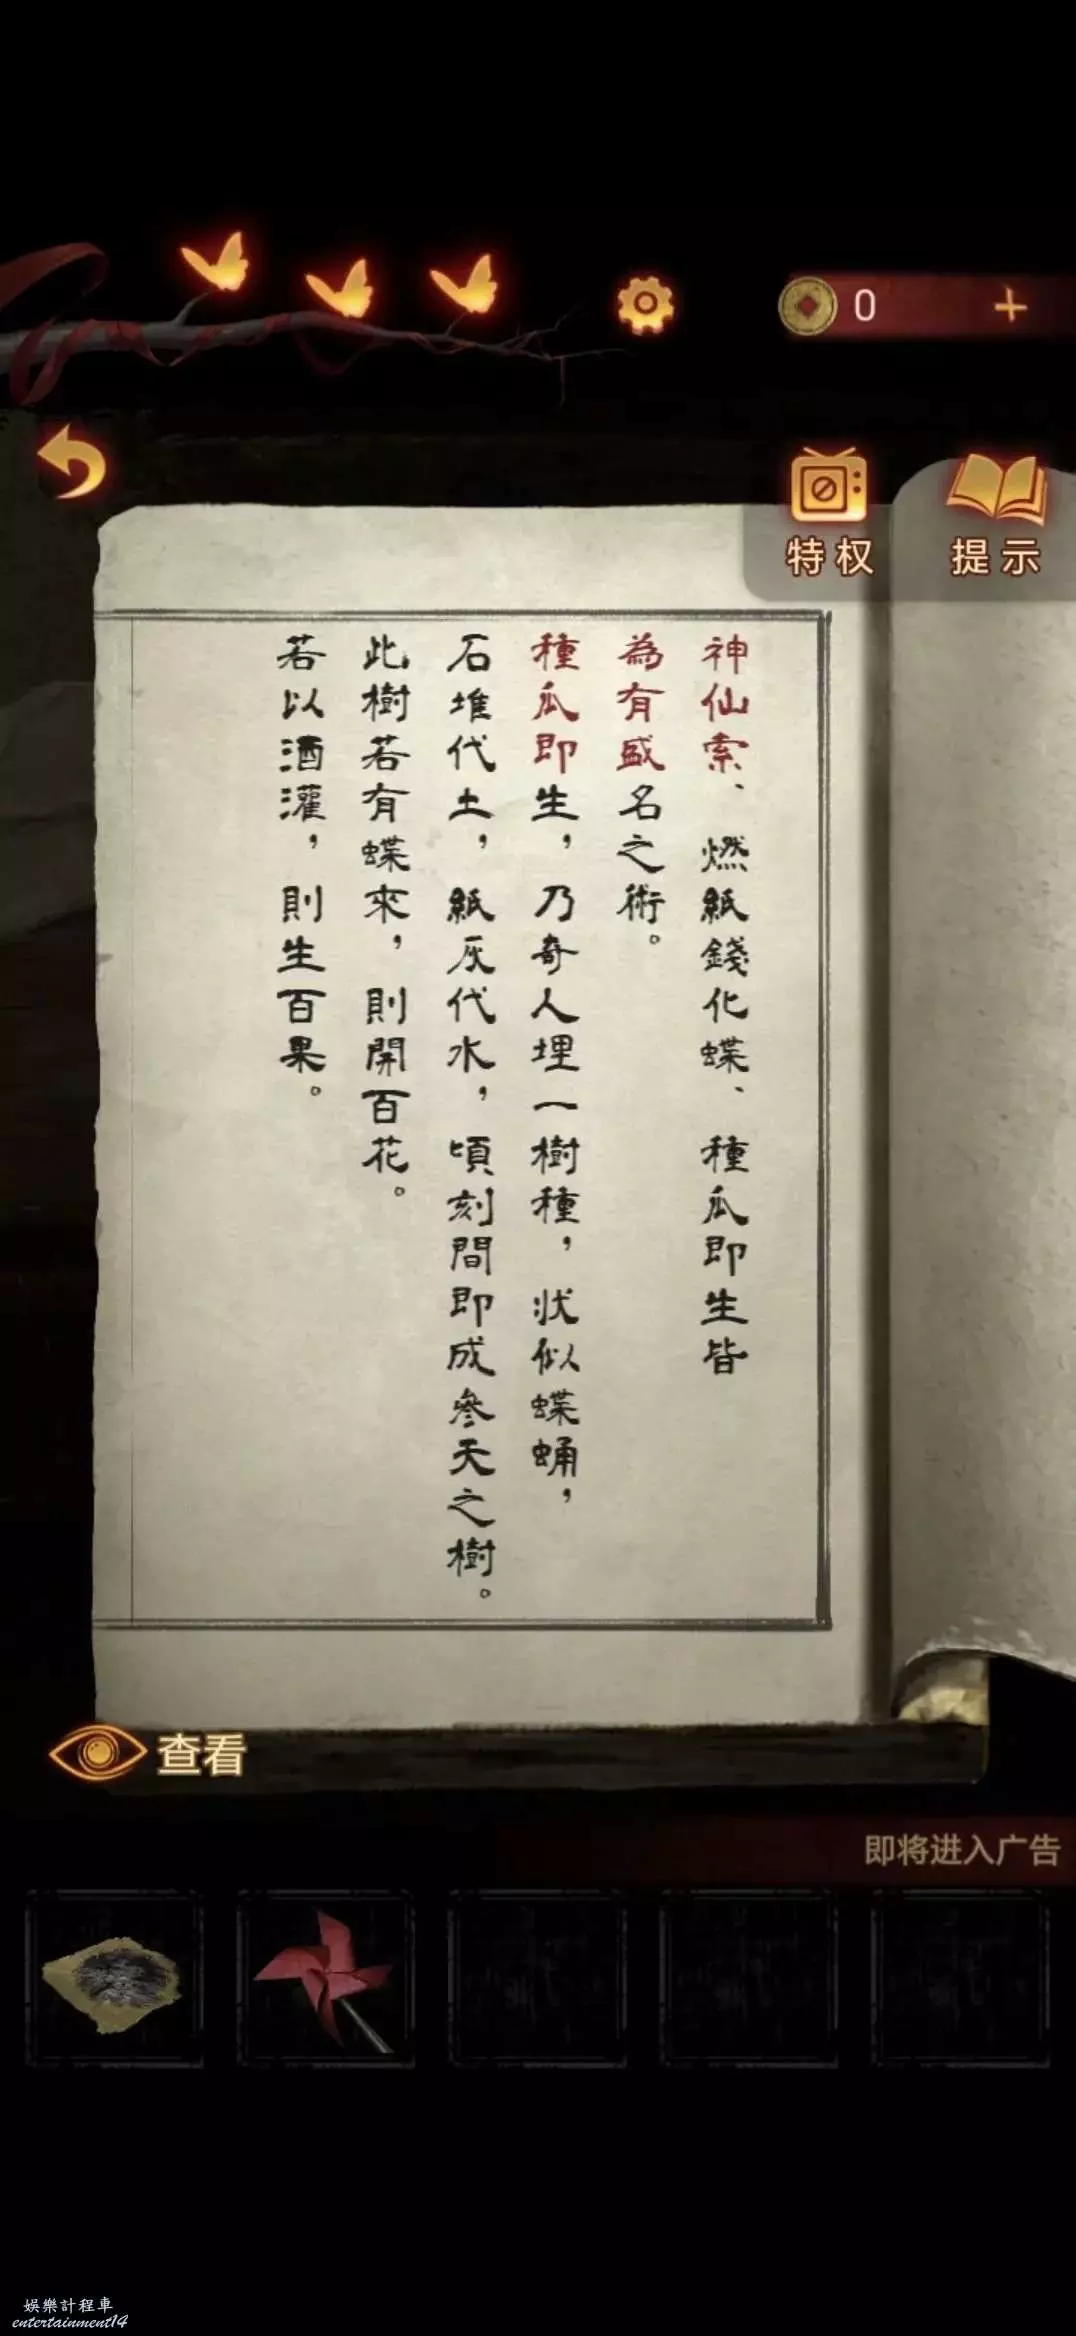 0
特权
提示
神仙索、燃紙錢化蝶、種瓜即生皆
為有盛名之術。
種瓜即生，乃奇人埋一樹種，狀似蝶蛹，
石堆代土，紙灰代水，頃刻間即成參天之樹。
此樹若有蝶來，則開百花。
若以酒灌，則生百果。
查看
即将进入广告
娛樂計程車
entertainment14